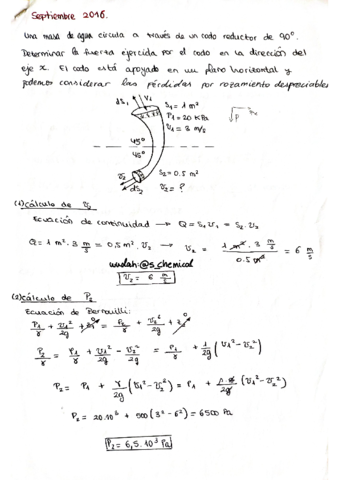 Septiembre 2016.
Una masa de agua circula a través de un codo reductor de 90º.
Determinar la fuerza ejercida por el codo en la dirección del
eje x. El codo está apoyado en un plano horizontal y
podemos considerar las pérdidas por rozamiento despreciables
dS₁ V₁
S₁ = 1 m²
P₁ = 20 KPa
V₁ = 3 m/s
45º
45º
V₂
dS₂
S₂ = 0.5 m²
V₂ = ?
(1) cálculo de V₂
Ecuación de continuidad → Q = S₁ V₁ = S₂ . V₂
Q = 1 m² . 3 m/s = 0,5 m² . V₂ → V₂ = 1 m² . 3 m/s / 0.5 m² = 6 m/s
wuolah: @s_chemical
V₂ = 6 m/s
(2) cálculo de P₂
Ecuación de Bernouilli:
P₁/γ + V₁²/2g + z₁⁰ = P₂/γ + V₂²/2g + z₂⁰
P₂/γ = P₁/γ + V₁²/2g - V₂²/2g = P₁/γ + 1/2g (V₁² - V₂²)
P₂ = P₁ + γ/2g (V₁² - V₂²) = P₁ + ρg/2g (V₁² - V₂²)
P₂ = 20.10³ + 500 (3² - 6²) = 6500 Pa
P₂ = 6,5.10³ Pa